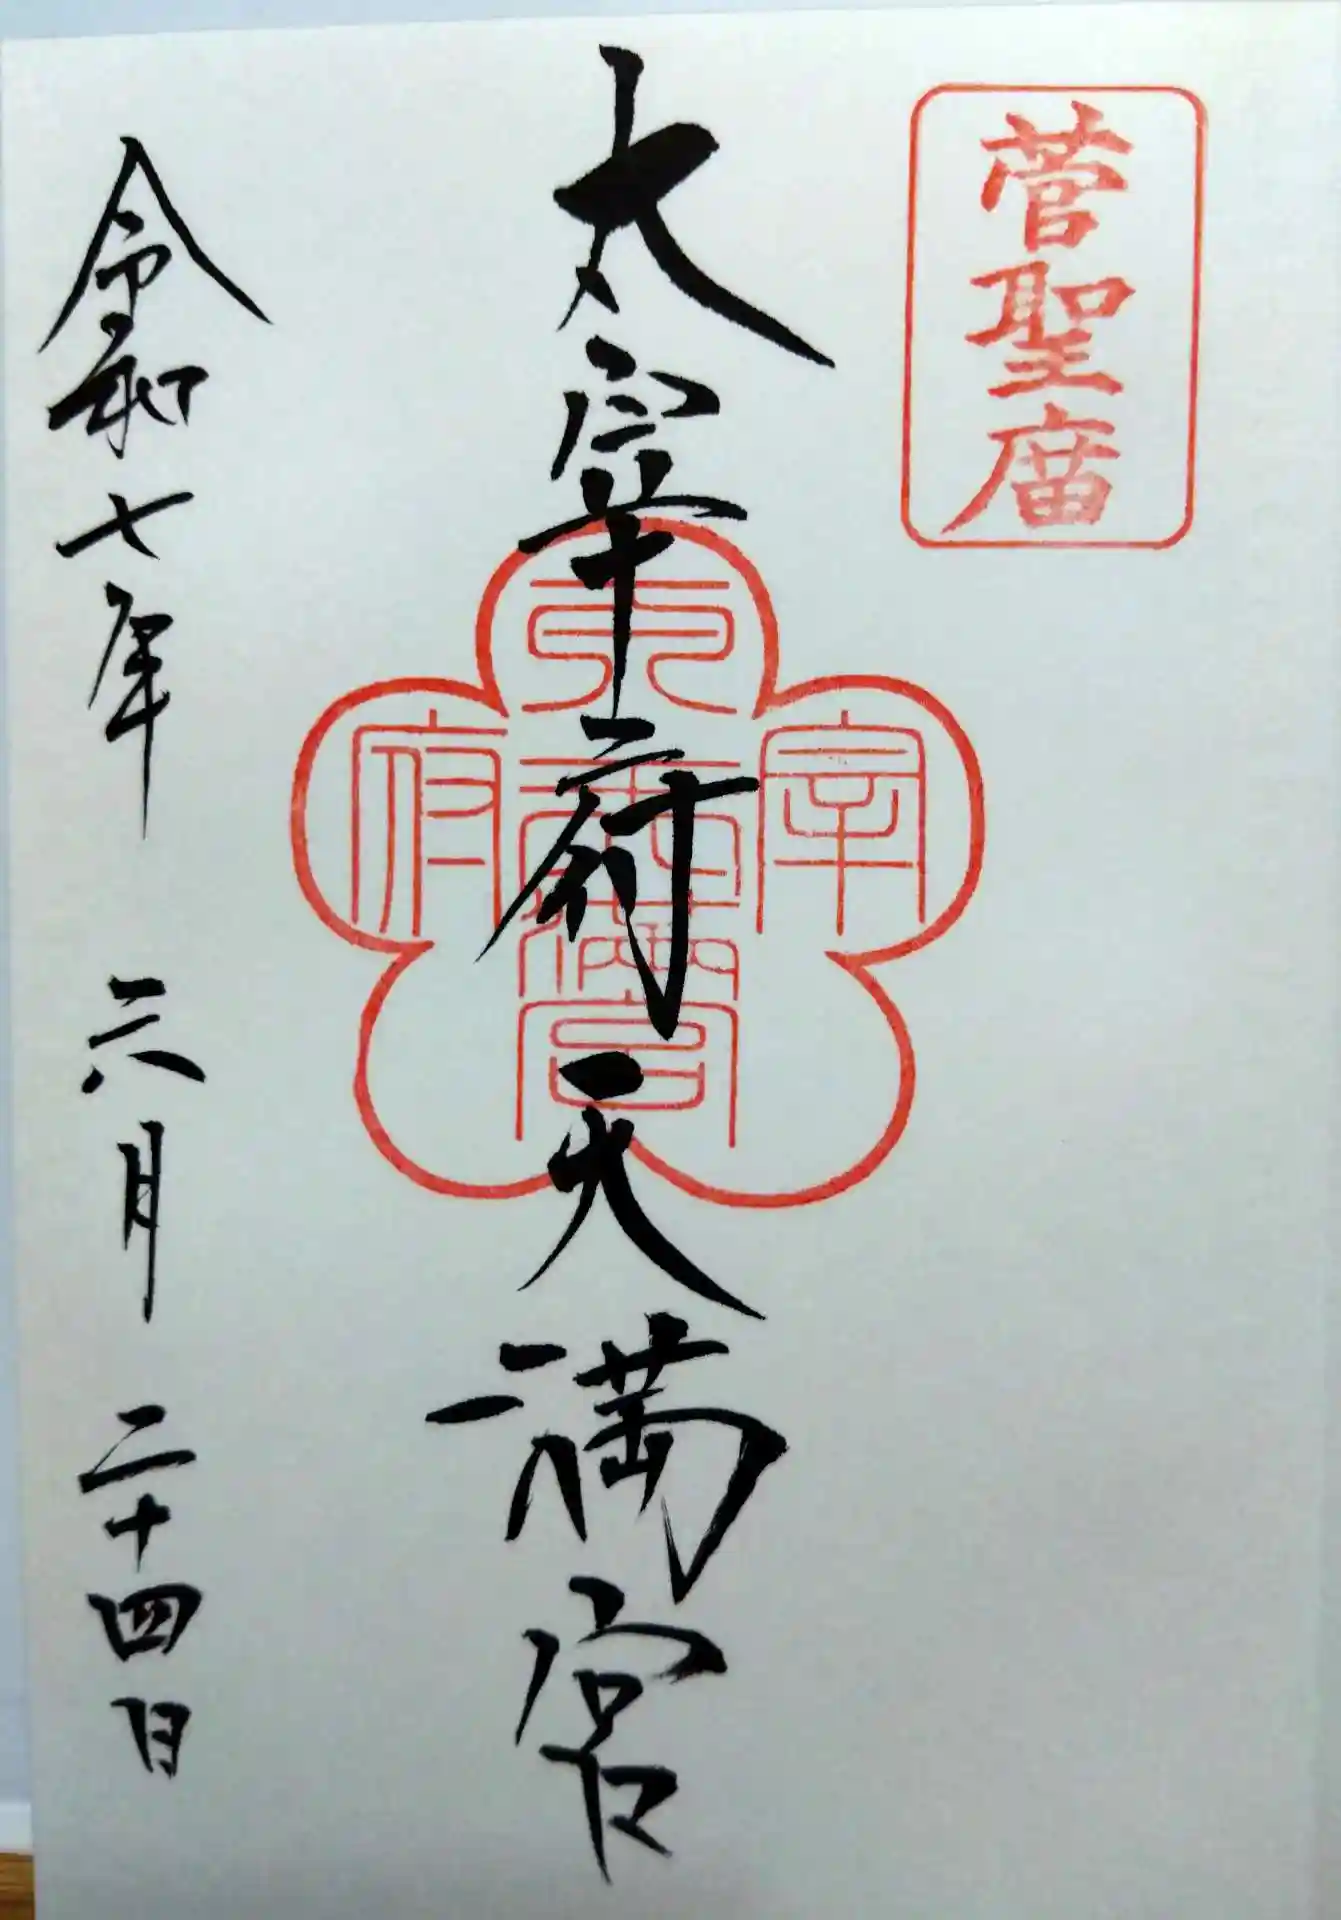 菅聖庿
太宰府天満宮
太宰府天満宮
令和七年 六月 二十四日